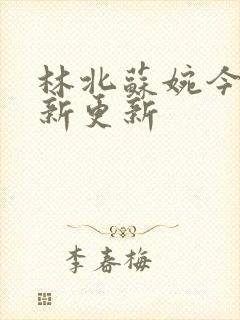 林北蘇婉今
新更新
李春梅